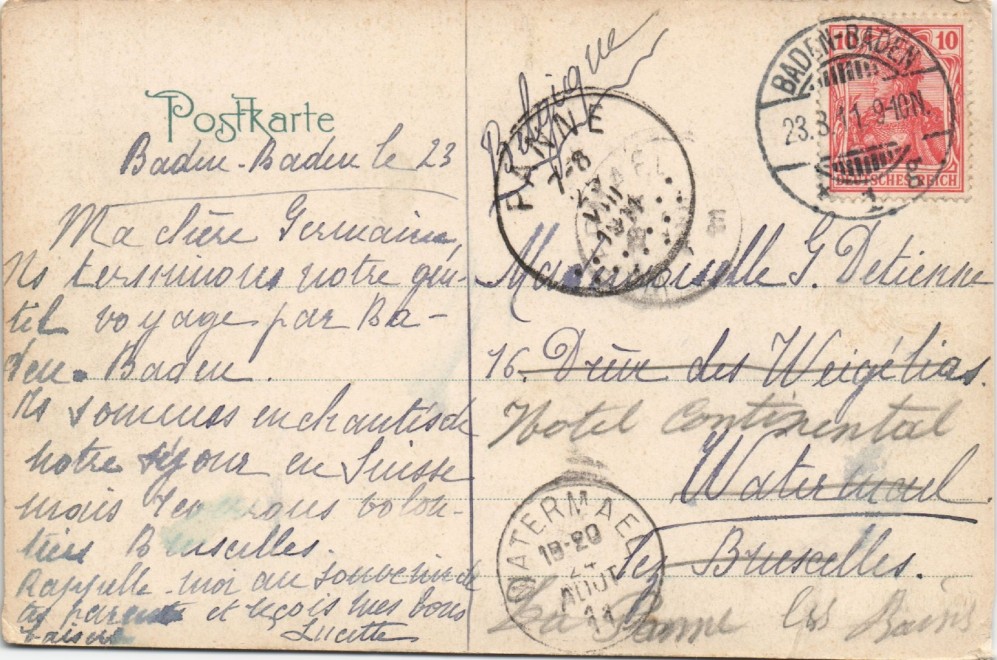 Postkarte
Baden-Baden le 23
Ma chère Germaine,
Ns terminons notre gen-
til voyage par Ba-
den-Baden.
Ns sommes enchantés de
notre séjour en Suisse
mais revenons volon-
tiers Bruxelles.
Rappelle-moi au souvenir de
tes parents et reçois mes bons
baisers Lucette
Belgique
Mademoiselle G Detienne
16. Drève des Weigélias.
Hotel Continental
Watermael
lez Bruxelles.
La Panne les Bains
BADEN-BADEN
23.8.11.9-10N.
* 1 g
10 10
DEUTSCHES REICH
PANNE
7-8
WATERMAEL
18-20
24
AOUT
11